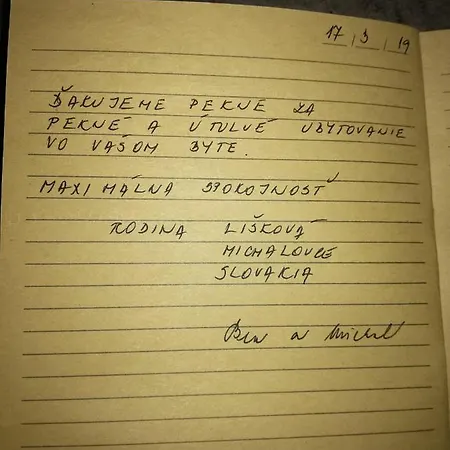 17 | 3 | 19
ĎAKUJEME PEKNE ZA
PEKNÉ A ÚTULNÉ UBYTOVANIE
VO VAŠOM BYTE.
MAXIMÁLNA SPOKOJNOSŤ
RODINA LIŠKOVÁ
MICHALOVCE
SLOVAKIA
a